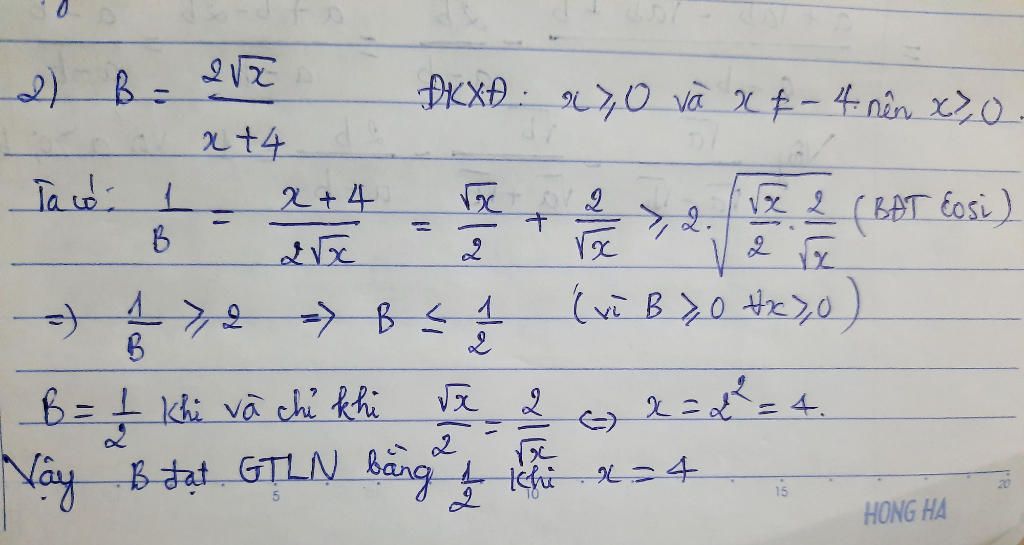 2) B = 2√x / (x + 4) ĐKXĐ: x ≥ 0 và x ≠ - 4 nên x ≥ 0.
Ta có: 1/B = (x + 4)/(2√x) = √x/2 + 2/√x ≥ 2.√(√x/2 . 2/√x) (BĐT Cosi)
=> 1/B ≥ 2 => B ≤ 1/2 (vì B ≥ 0 ∀x ≥ 0)
B = 1/2 khi và chỉ khi √x/2 = 2/√x <=> x = 2² = 4.
Vậy B đạt GTLN bằng 1/2 khi x = 4
5 10 15 20
HONG HA